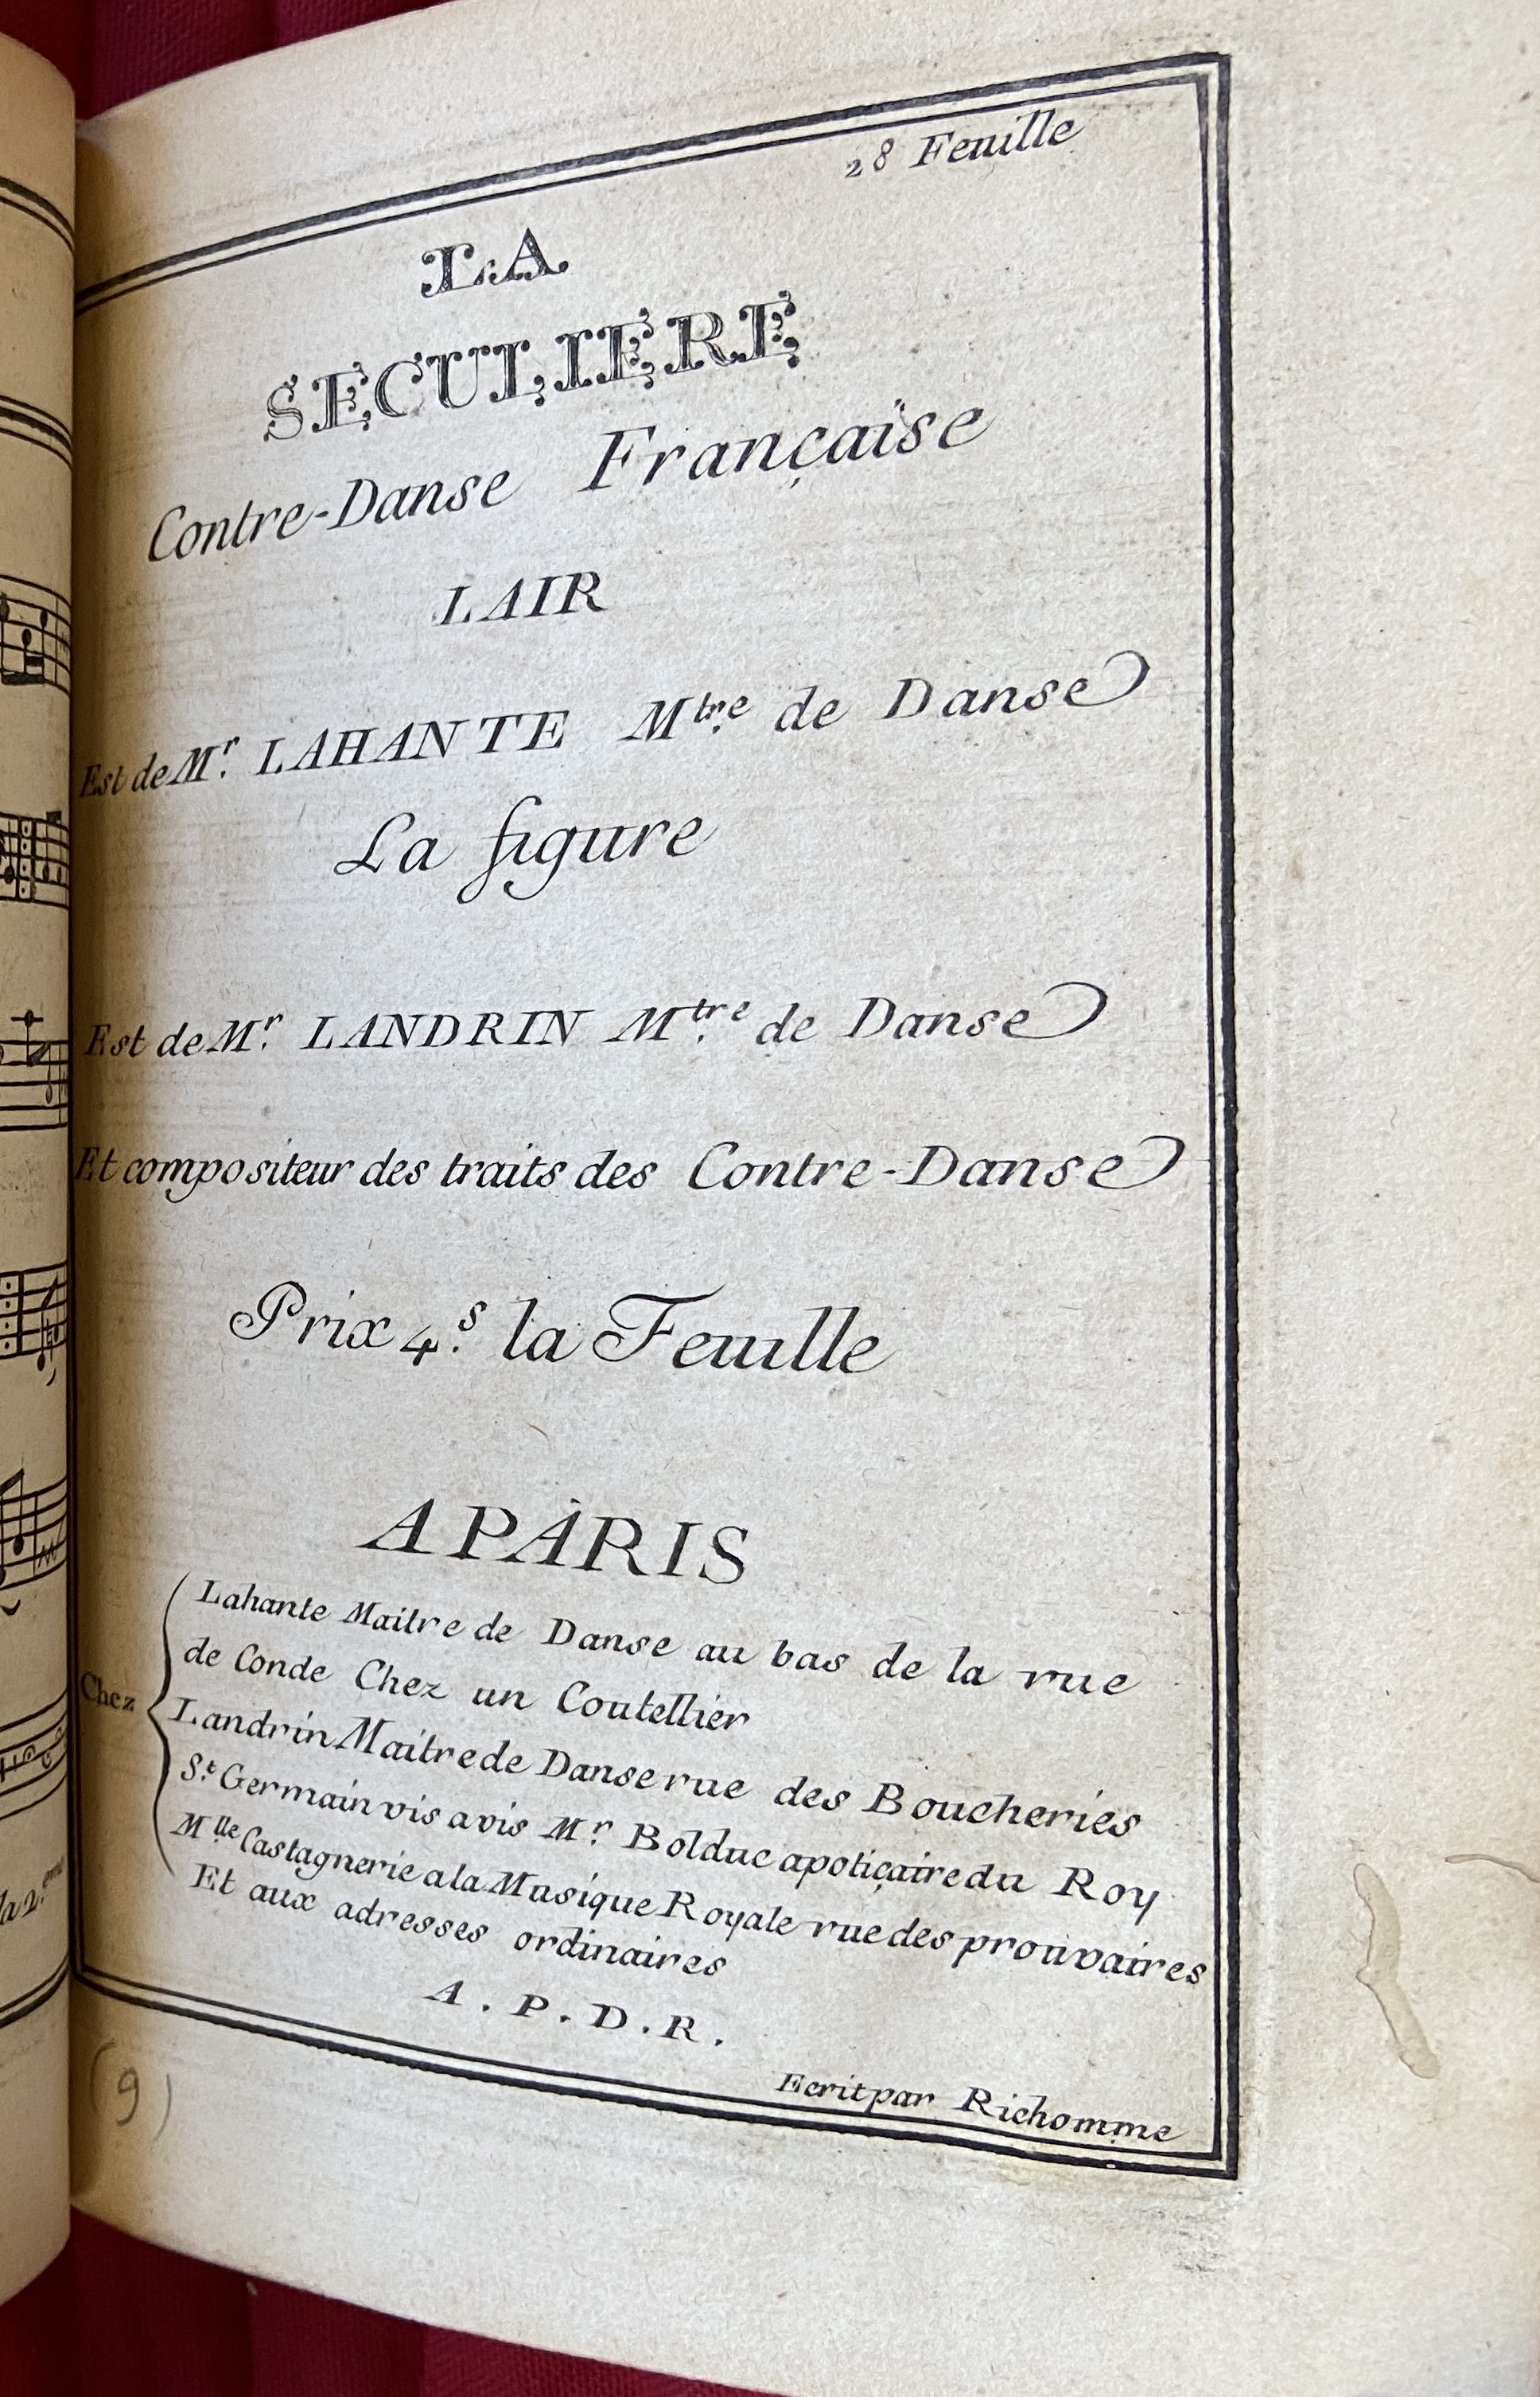 28 Feuille
LA
SECULIERE
Contre-Danse Françaïse
LAIR
Est de Mr. LAHANTE Mtre. de Danse
La figure
Est de Mr. LANDRIN Mtre. de Danse
Et compositeur des traits des Contre-Danse
Prix 4.s la Feuille
A PARIS
Chez
Lahante Maitre de Danse au bas de la rue
de Conde Chez un Coutellier
Landrin Maitre de Danse rue des Boucheries
St. Germain vis avis Mr. Bolduc apotiçaire du Roy
Mlle Castagnerie a la Musique Royale rue des prouvaires
Et aux adresses ordinaires
A.P.D.R.
Ecrit par Richomme
(9)
la 2.eme